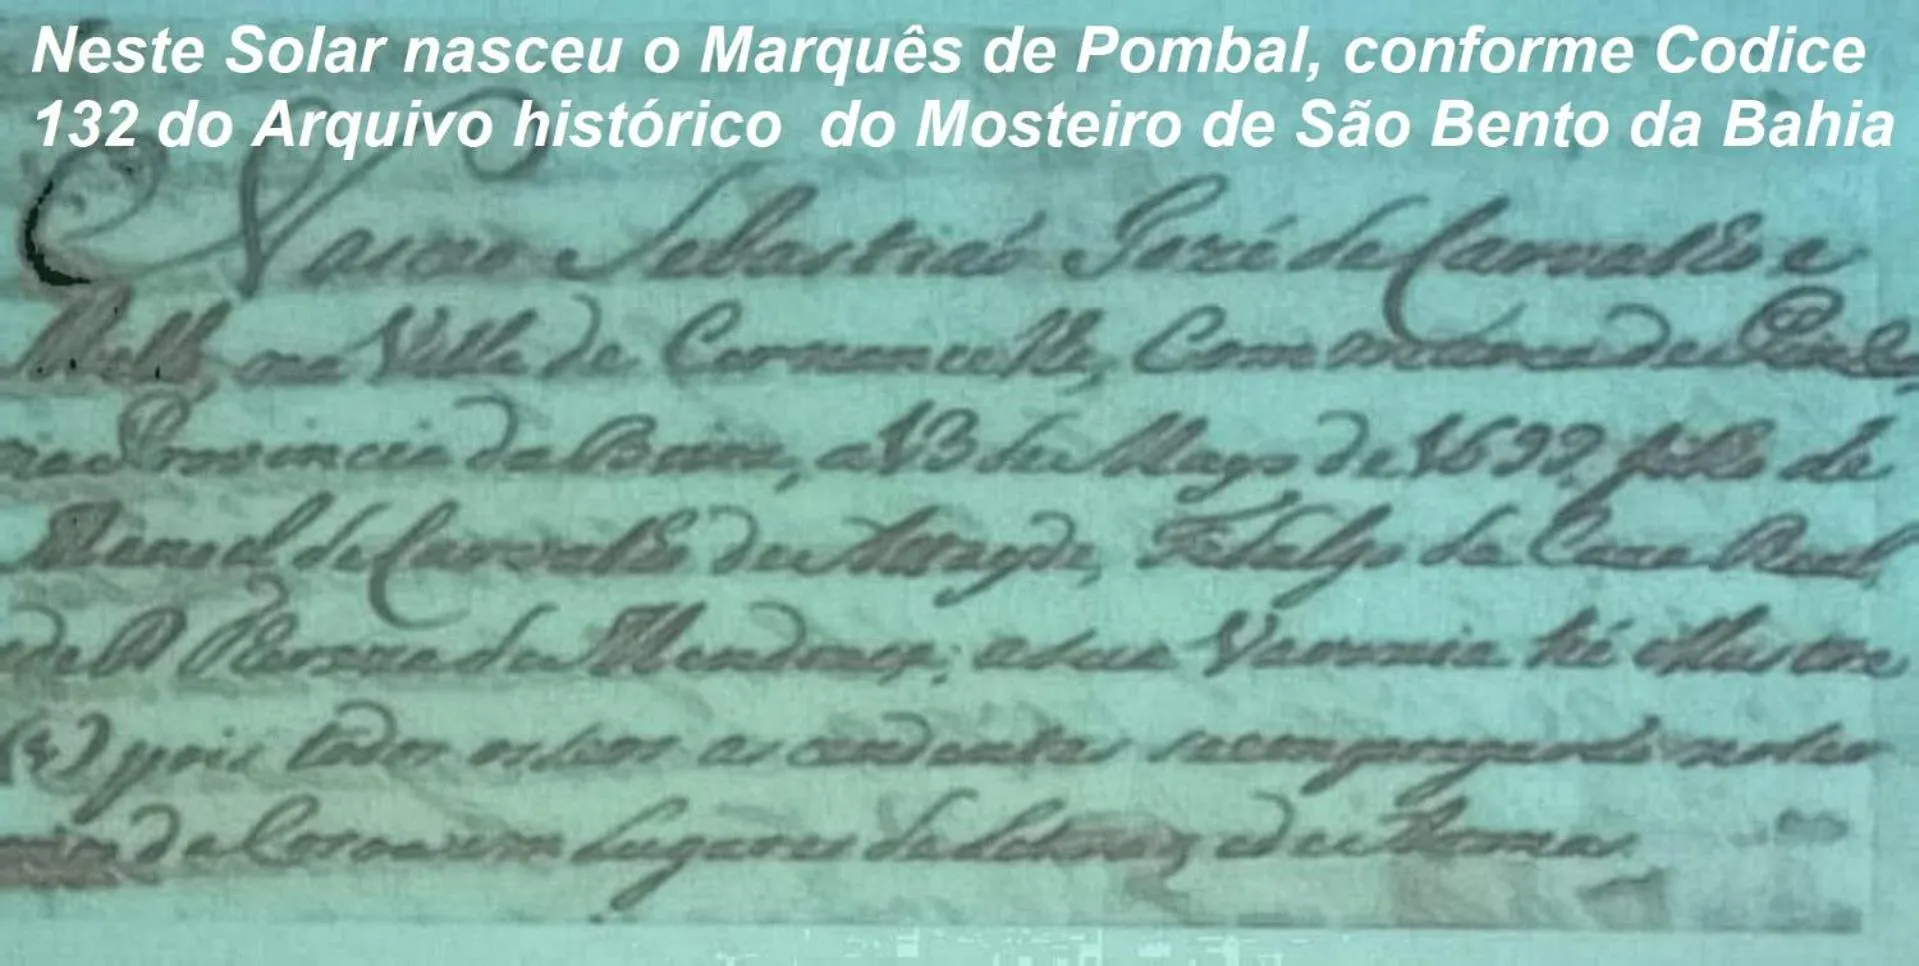 Neste Solar nasceu o Marquês de Pombal, conforme Codice
132 do Arquivo histórico do Mosteiro de São Bento da Bahia
Nasceo Sebastiaõ José de Carvalho e
Mello, na Villa de Cernancelhe, Comarca de
Provincia da Beira, a 13 de Mayo de 1699, filho de
Manoel de Carvalho de Attayde, Fidalgo da Caza Real,
de D. Thereza de Mendonça, a sua Varonia hé illustre
pois todos os seus ascendentes se empregaraõ no
da Coroa em lugares de Letras, e de Armas